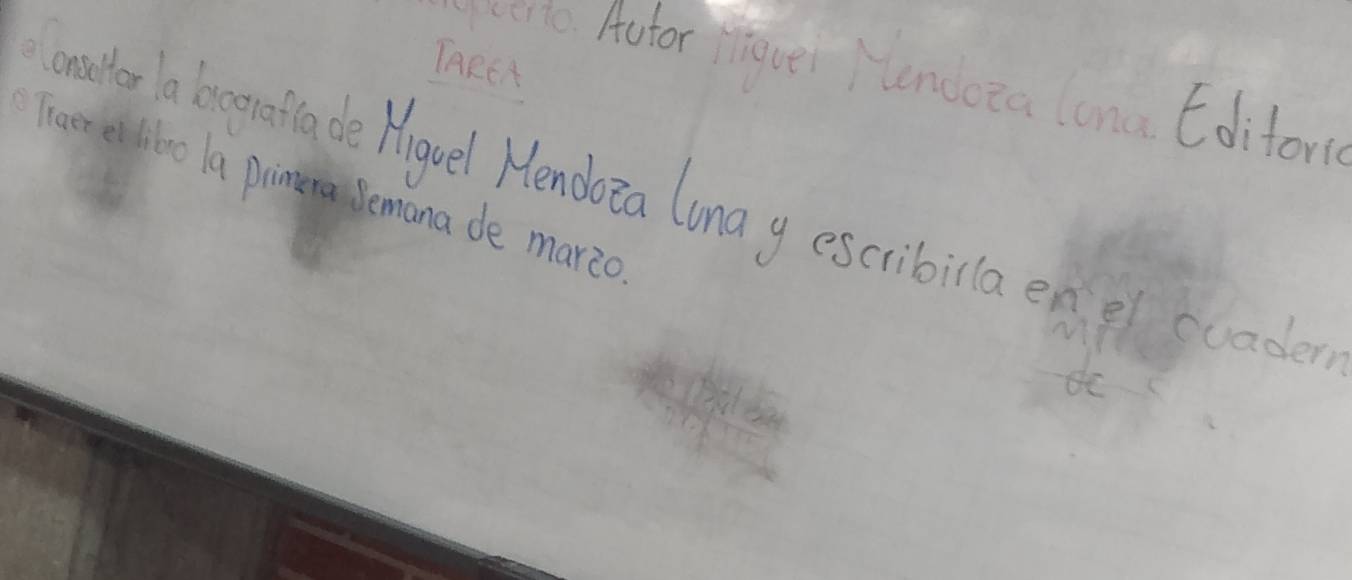 Autor Miguel Mendoza Luna. Editoria
TAREA
Consultar la biografía de Miguel Mendoza Luna y escribirla en el cuadern
Traer el libro la primera semana de marzo.